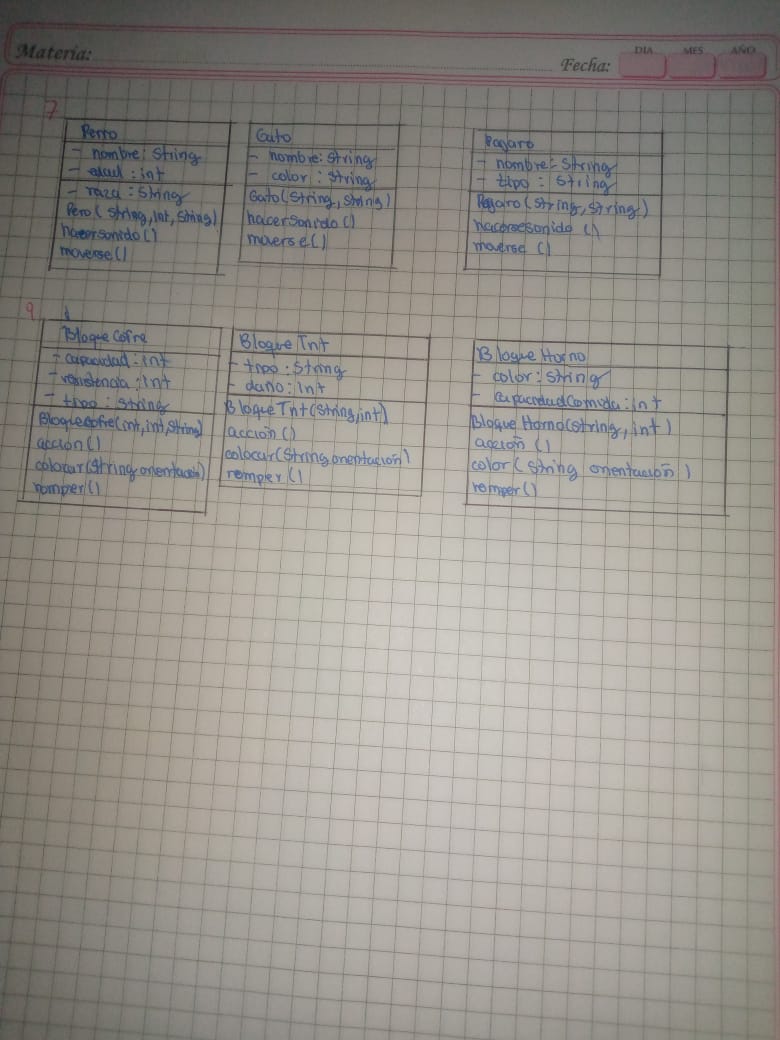 Materia:
Fecha:
DIA MES AÑO
7
Perro
- nombre: String
- edad: int
- raza: String
Pero(String, int, String)
hacersonido()
moverse()
Gato
- nombre: String
- color: String
Gato(String, String)
hacersonido()
moverse()
Pajaro
- nombre: String
- tipo: String
Pajaro(String, String)
hacersesonido()
moverse()
9
Bloque Cofre
- capacidad: int
- resistencia: int
- tipo: String
Bloquecofre(int, int, String)
acción()
colocar(String orientación)
romper()
Bloque Tnt
- tipo: String
- daño: int
Bloque Tnt(String, int)
acción()
colocar(String orientación)
romper()
Bloque Horno
- color: String
- capacidadComida: int
Bloque Horno(String, int)
acción()
color(String orientación)
romper()